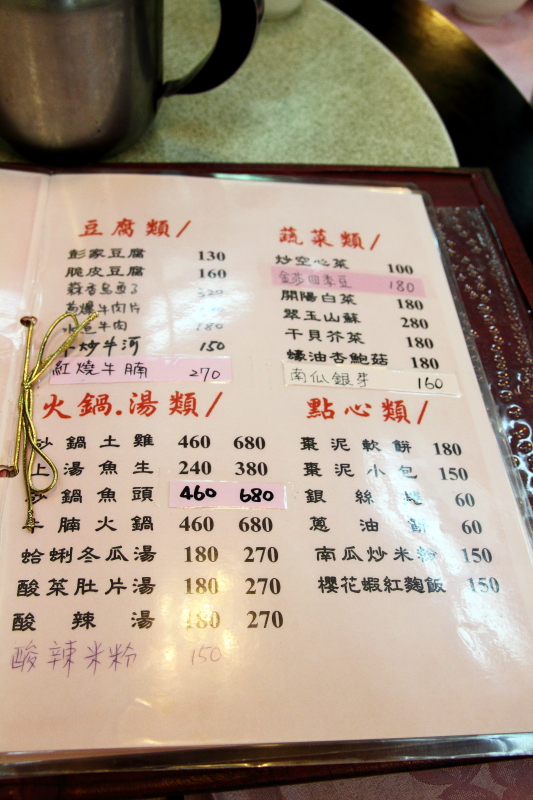 豆腐類/
彭家豆腐 130
脆皮豆腐 160
蒜香烏 320
爆牛肉片
水 牛肉 180
炒牛河 150
紅燒牛腩 270
蔬菜類/
炒空心菜 100
金莎四季豆 180
開陽白菜 180
翠玉山蘇 280
干貝芥菜 180
蠔油杏鮑菇 180
南瓜銀芽 160
火鍋.湯類/
砂鍋土雞 460 680
上湯魚生 240 380
砂鍋魚頭 460 680
牛腩火鍋 460 680
蛤蜊冬瓜湯 180 270
酸菜肚片湯 180 270
酸辣湯 180 270
酸辣米粉 150
點心類/
棗泥軟餅 180
棗泥小包 150
銀絲捲 60
蔥油餅 60
南瓜炒米粉 150
櫻花蝦紅麴飯 150